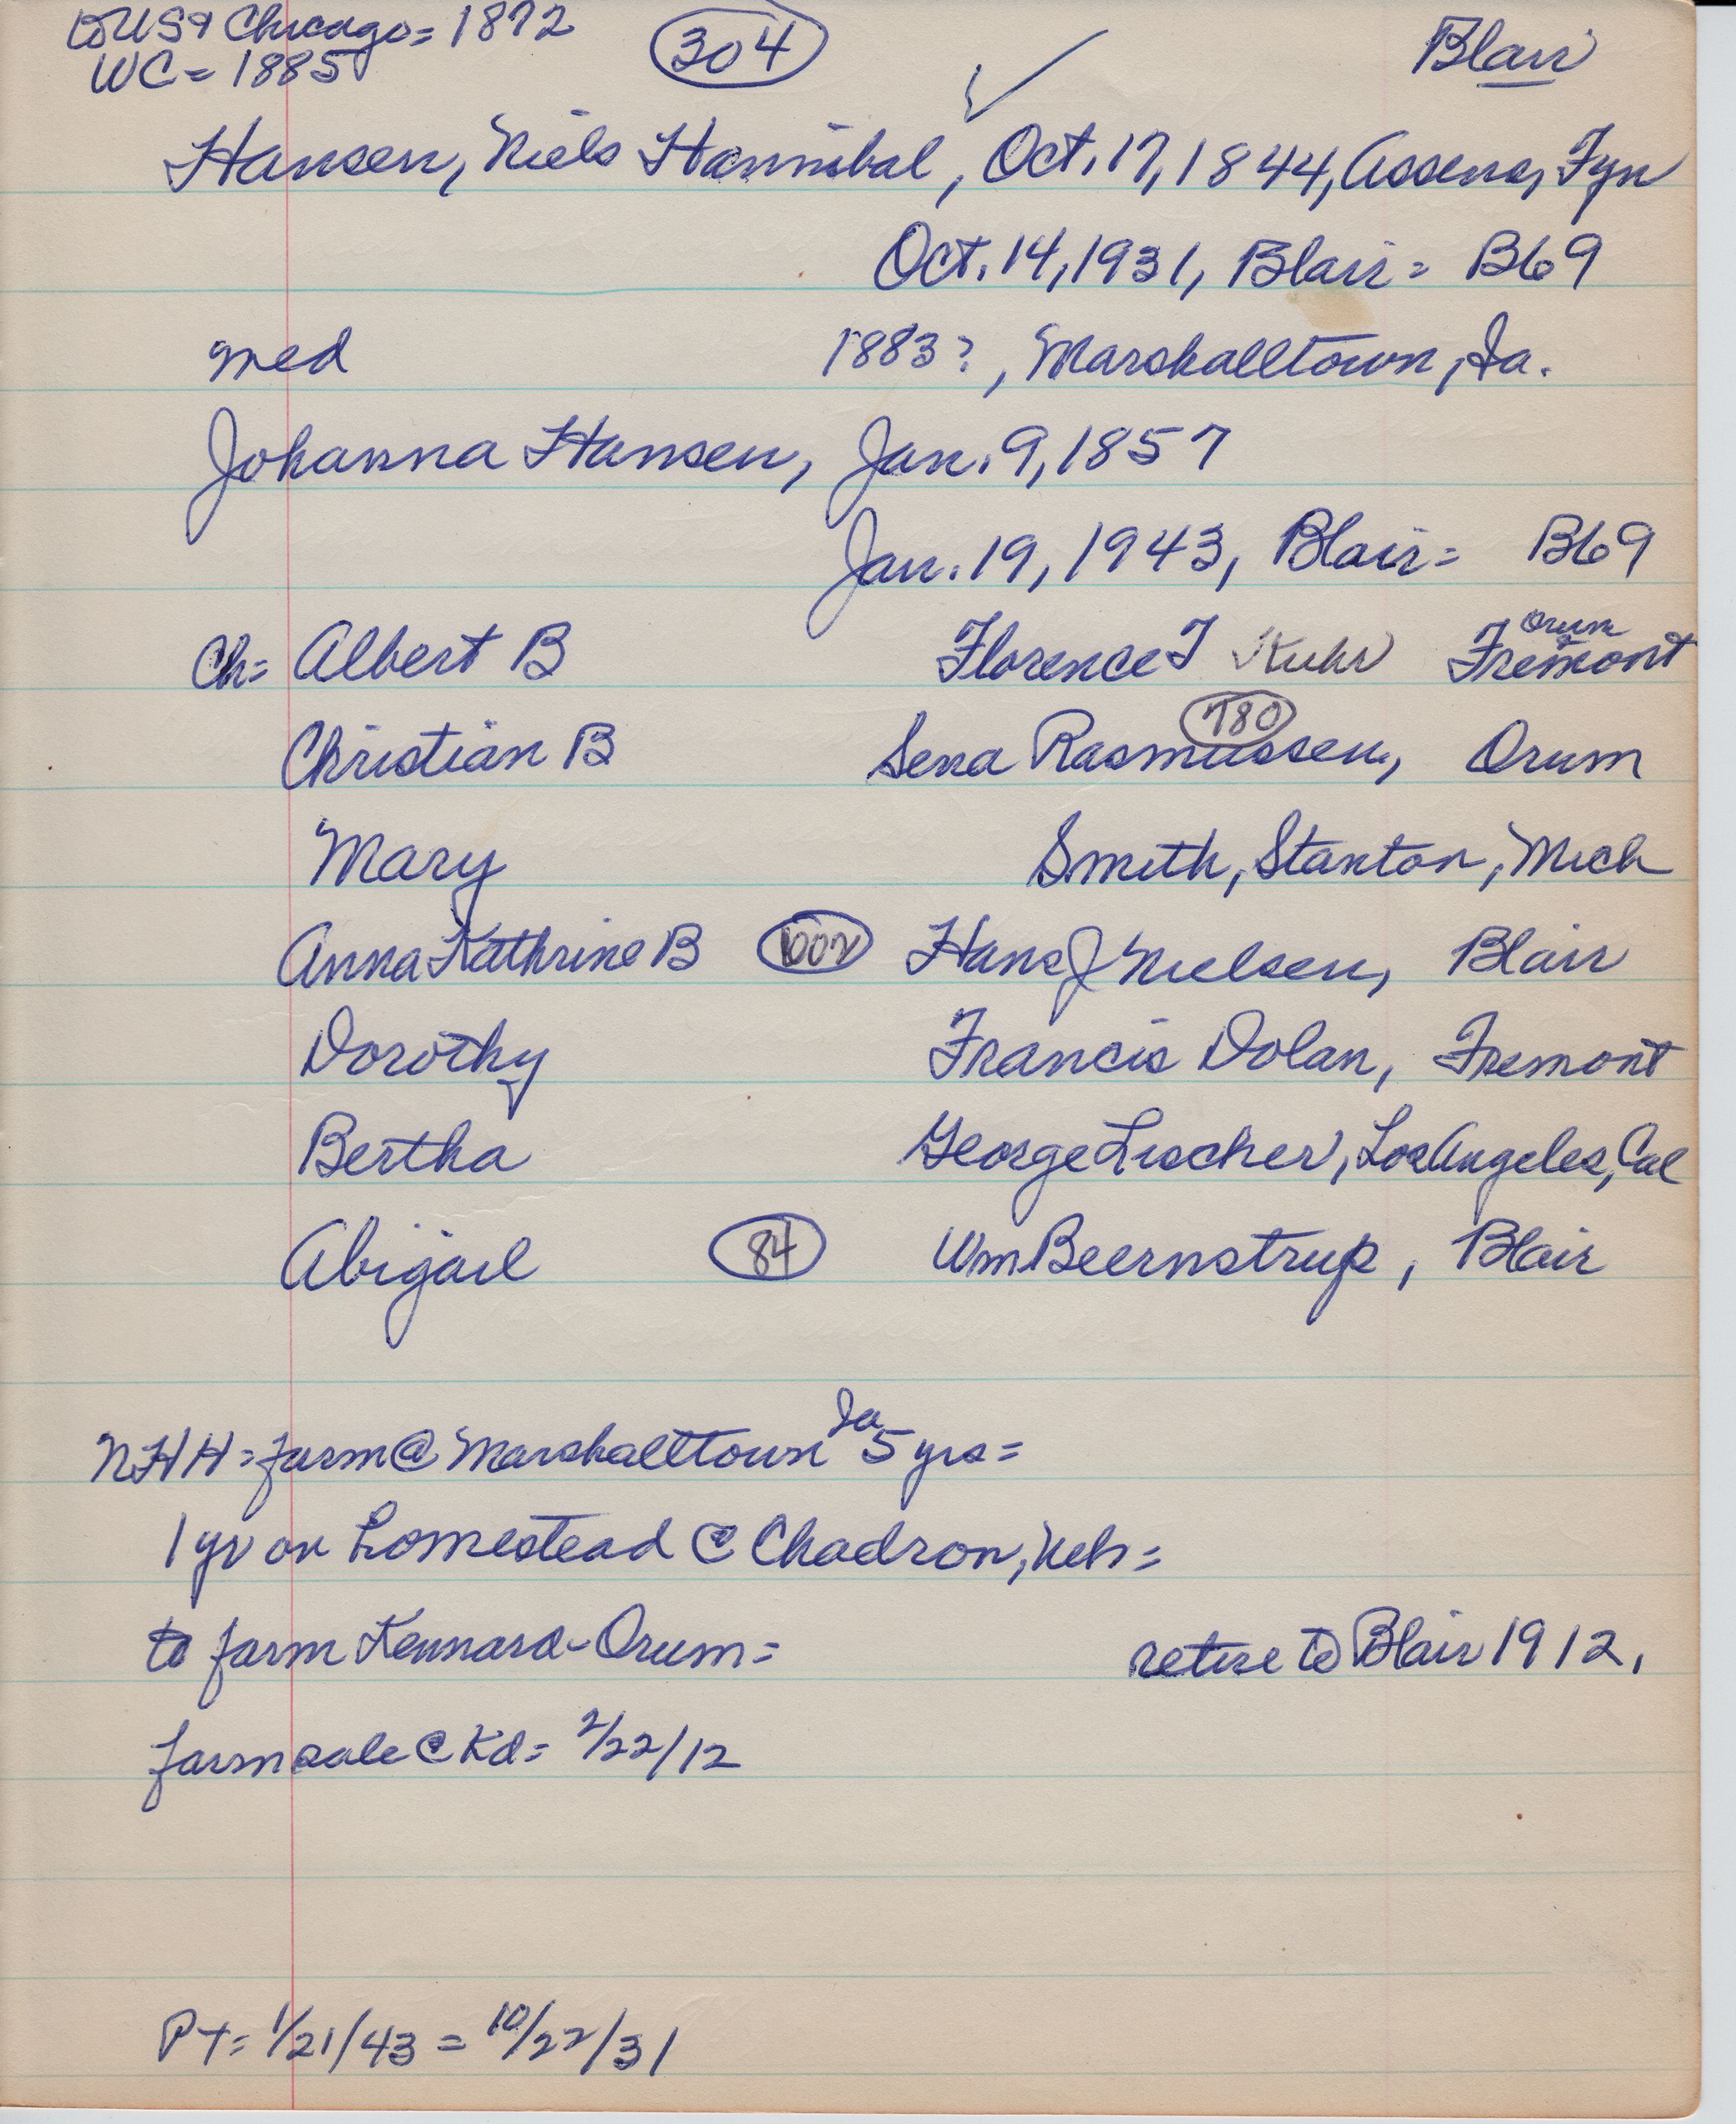 to US & Chicago = 1872 (304) ✓ Blair
WC = 1885
Hansen, Niels Hannibal, Oct. 17, 1844, Assens, Fyn
Oct. 14, 1931, Blair = B69
med 1883?, Marshalltown, Ia.
Johanna Hansen, Jan. 9, 1857
Jan. 19, 1943, Blair = B69
Orum
Ch = Albert B Florence T Kuhr Fremont
780
Christian B Sena Rasmussen, Orum
Mary Smith, Stanton, Mich
Anna Kathrine B 1002 Hans J Nielsen, Blair
Dorothy Francis Dolan, Fremont
Bertha George Lischer, Los Angeles, Cal
Abigail 84 Wm Beernstrup, Blair
NHH = farm @ Marshalltown Ia 5 yrs =
1 yr on homestead @ Chadron, Neb =
to farm Kennard-Orum = retire to Blair 1912.
farm sale @ Kd = 2/22/12
PT = 1/21/43 = 10/22/31